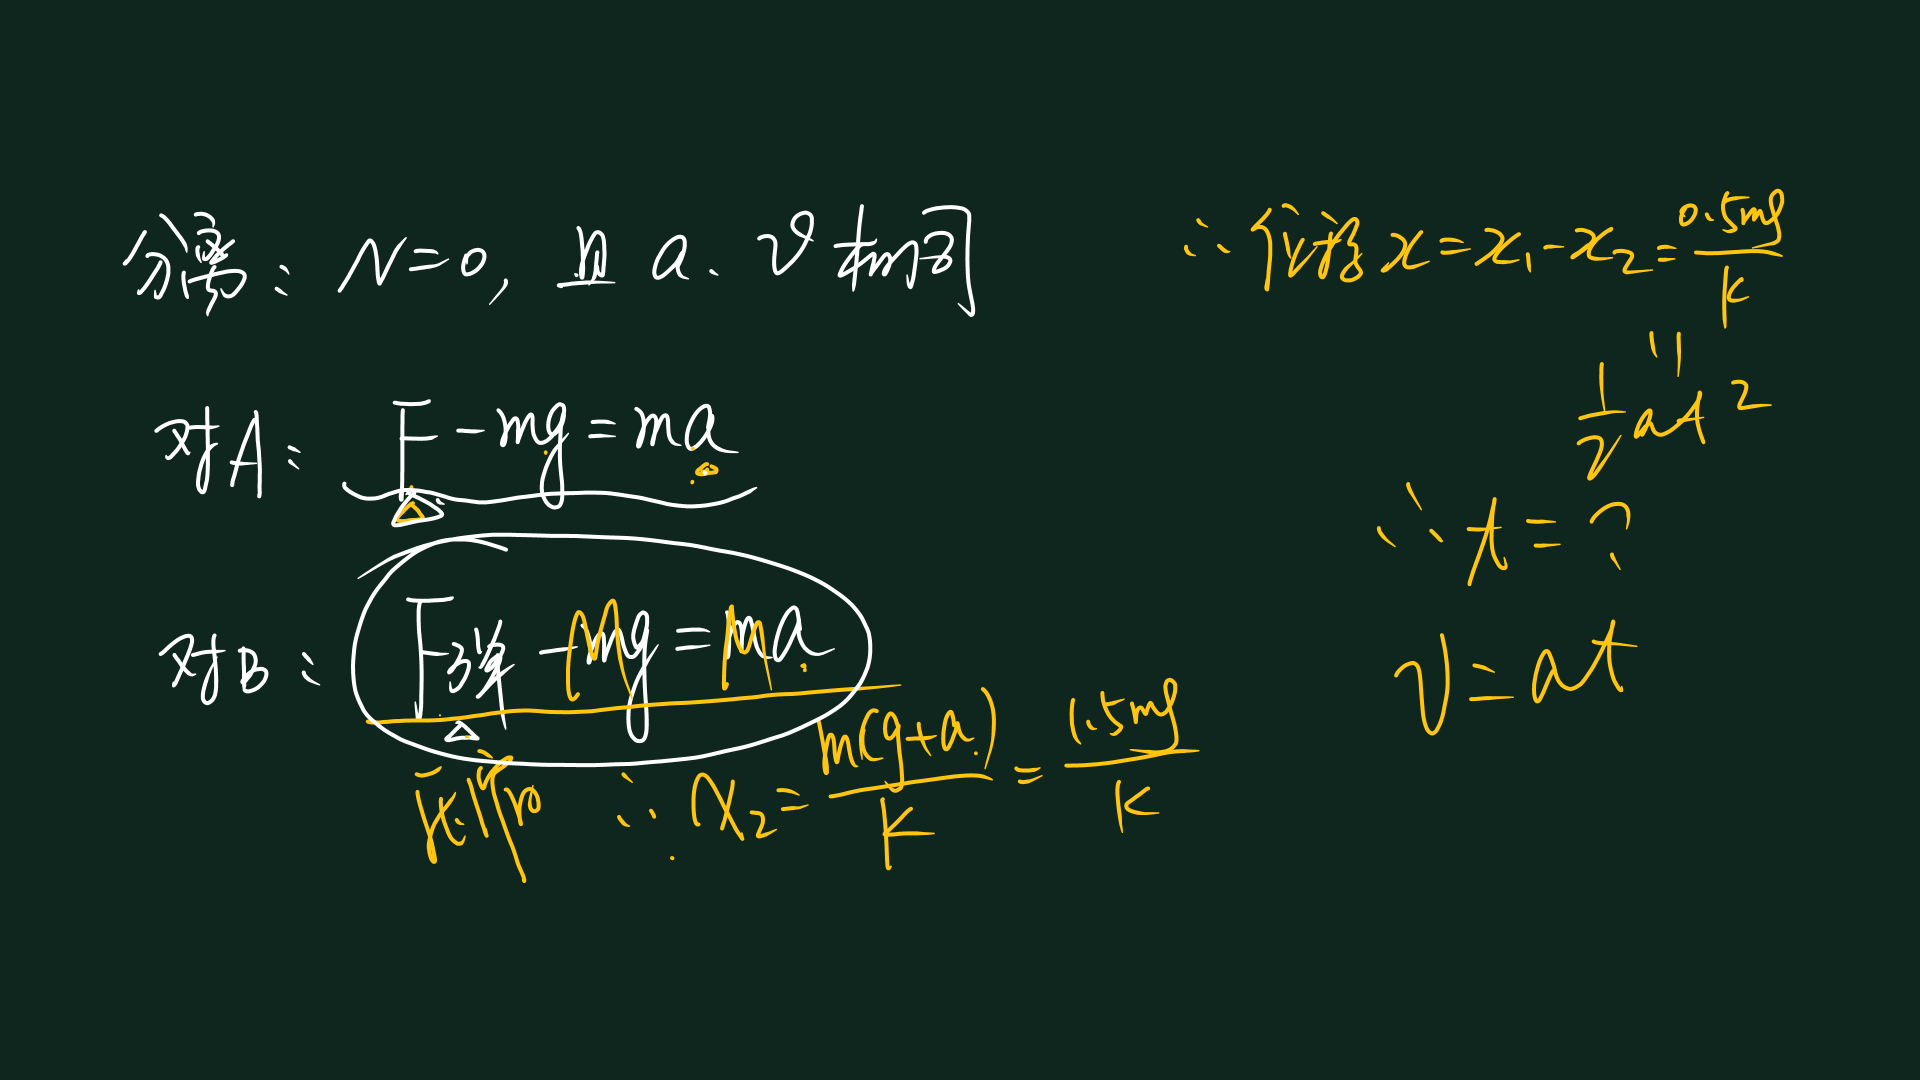 分离: N=0, 且 a、v 相同
对A: F-mg=ma
对B: F弹-mg=ma
∴ x₂= m(g+a)/k = 1.5mg/k
∴ 位移 x=x₁-x₂= 0.5mg/k
"
1/2 at²
∴ t=?
v=at